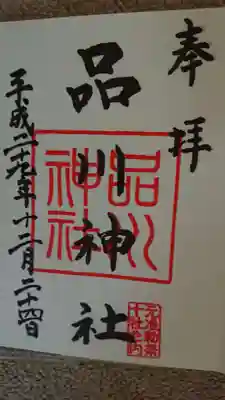 奉拝
品川神社
品川神社
平成二十九年十二月二十四日